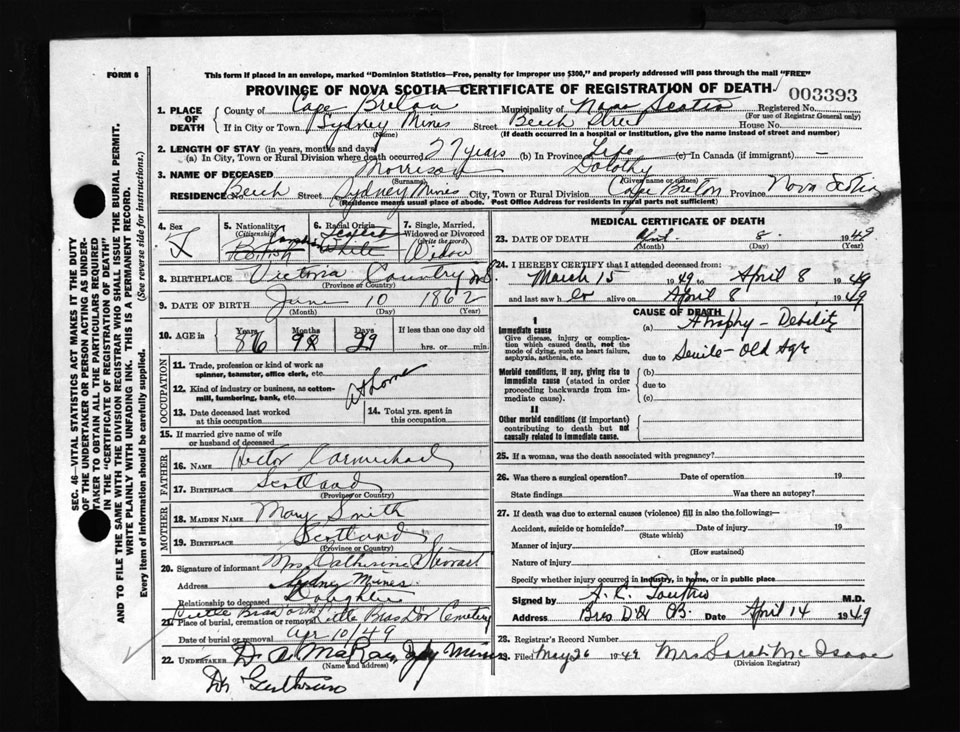 FORM 6
This form if placed in an envelope, marked "Dominion Statistics—Free, penalty for improper use $300," and properly addressed will pass through the mail "FREE"
PROVINCE OF NOVA SCOTIA—CERTIFICATE OF REGISTRATION OF DEATH
003393
1. PLACE OF DEATH
County of Cape Breton Municipality of Nova Scotia Registered No.
(For use of Registrar General only)
If in City or Town Sydney Mines Street Beech Street House No.
(Name)
(If death occurred in a hospital or institution, give the name instead of street and number)
2. LENGTH OF STAY (in years, months and days)
(a) In City, Town or Rural Division where death occurred 27 years (b) In Province Life (c) In Canada (if immigrant) —
3. NAME OF DECEASED Morrison Dolothy
(Surname) (Given name or names)
RESIDENCE Beech Street Sydney Mines City, Town or Rural Division Cape Breton Province Nova Scotia
(Residence means usual place of abode. Post Office Address for residents in rural parts not sufficient)
4. Sex
5. Nationality (Citizenship) British
6. Racial Origin White
7. Single, Married, Widowed or Divorced (Write the word) Widow
8. BIRTHPLACE Victoria Country N.S.
(Province or Country)
9. DATE OF BIRTH June 10 1862
(Month) (Day) (Year)
10. AGE in Years 86 Months 9 Days 29 If less than one day old
hrs. or min.
OCCUPATION
11. Trade, profession or kind of work as spinner, teamster, office clerk, etc.
12. Kind of industry or business, as cotton-mill, lumbering, bank, etc.
At home
13. Date deceased last worked at this occupation
14. Total yrs. spent in this occupation
15. If married give name of wife or husband of deceased
FATHER
16. NAME Hector Carmichael
17. BIRTHPLACE Scotland
(Province or Country)
MOTHER
18. MAIDEN NAME Mary Smith
19. BIRTHPLACE Scotland
(Province or Country)
20. Signature of informant Mrs Catherine Stewart
Address Sydney Mines
Relationship to deceased Daughter
21. Place of burial, cremation or removal Little Bras D'Or Cemetery
Date of burial or removal Apr 10/49
22. UNDERTAKER D. A. McRae, Syd Mines
(Name and address)
MEDICAL CERTIFICATE OF DEATH
23. DATE OF DEATH April 8 1949
(Month) (Day) (Year)
24. I HEREBY CERTIFY that I attended deceased from:
March 15 1949 to April 8 1949
and last saw her alive on April 8 1949
CAUSE OF DEATH
I
Immediate cause
Give disease, injury or complication which caused death, not the mode of dying, such as heart failure, asphyxia, asthenia, etc.
(a) Atrophy - Debility
due to Senile - Old Age
Morbid conditions, if any, giving rise to immediate cause (stated in order proceeding backwards from immediate cause).
(b)
due to
(c)
II
Other morbid conditions (if important) contributing to death but not causally related to immediate cause.
25. If a woman, was the death associated with pregnancy?
26. Was there a surgical operation? Date of operation 19
State findings Was there an autopsy?
27. If death was due to external causes (violence) fill in also the following:—
Accident, suicide or homicide? Date of injury 19
(State which)
Manner of injury
(How sustained)
Nature of injury
Specify whether injury occurred in industry, in home, or in public place
Signed by M.D.
Address Bras D'Or Date April 14 1949
28. Registrar's Record Number
29. Filed May 26 1949 Mrs Sarah McIsaac
(Division Registrar)
SEC. 46—VITAL STATISTICS ACT MAKES IT THE DUTY
OF THE UNDERTAKER OR PERSON ACTING AS UNDERTAKER TO OBTAIN ALL THE PARTICULARS REQUIRED
IN THE "CERTIFICATE OF REGISTRATION OF DEATH"
AND TO FILE THE SAME WITH THE DIVISION REGISTRAR WHO SHALL ISSUE THE BURIAL PERMIT.
WRITE PLAINLY WITH UNFADING INK. THIS IS A PERMANENT RECORD.
Every item of information should be carefully supplied. (See reverse side for instructions.)